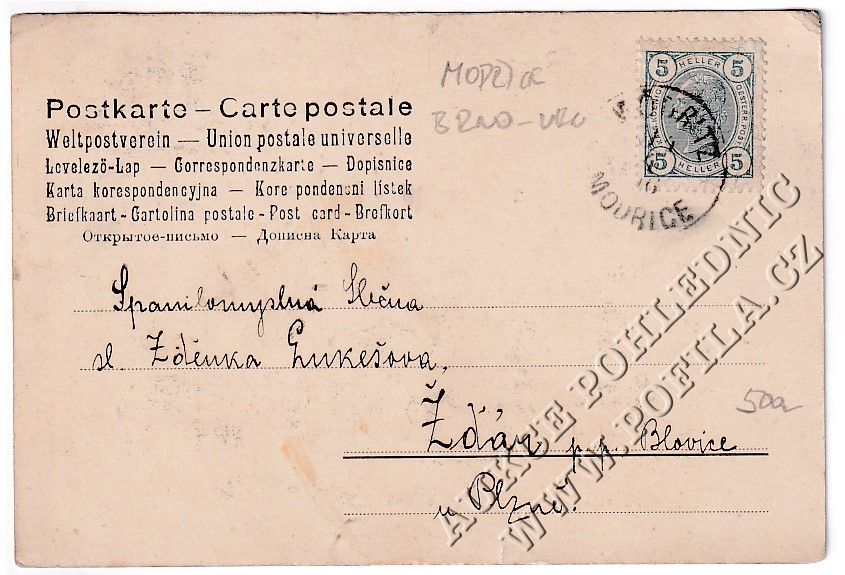 MODŘICE
BRNO-VEN
Postkarte – Carte postale
Weltpostverein — Union postale universelle
Levelező-Lap — Correspondenzkarte — Dopisnice
Karta korespondencyjna — Korespondencni listek
Briefkaart - Cartolina postale - Post card - Brefkort
Открытое-письмо — Дописна Карта
5 HELLER 5
5 HELLER 5
MODRICE
Spanilomyslná Slečna
sl. Zdeňka Lukešova,
Žďár p. p. Blovice
u Plzně.
500
AUKCE POHLEDNIC
WWW.POFILA.CZ